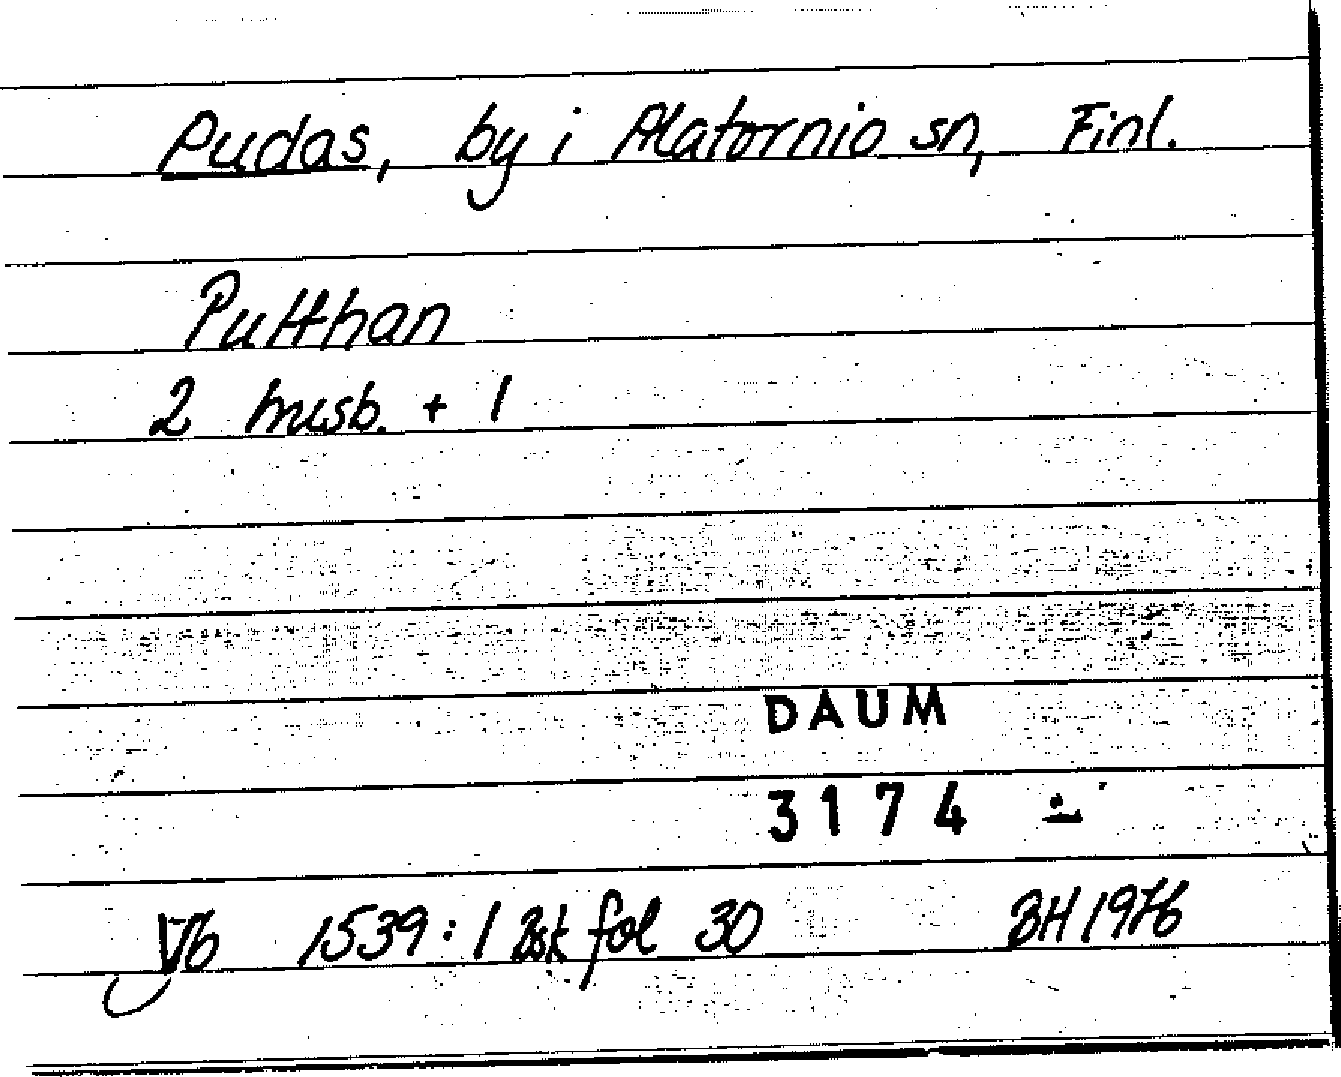 Pudas, by i Alatornio sn, Finl.
Putthan
2 husb. + 1
DAUM
3174
Vb 1539:1 Bsk fol 30 BH 1976